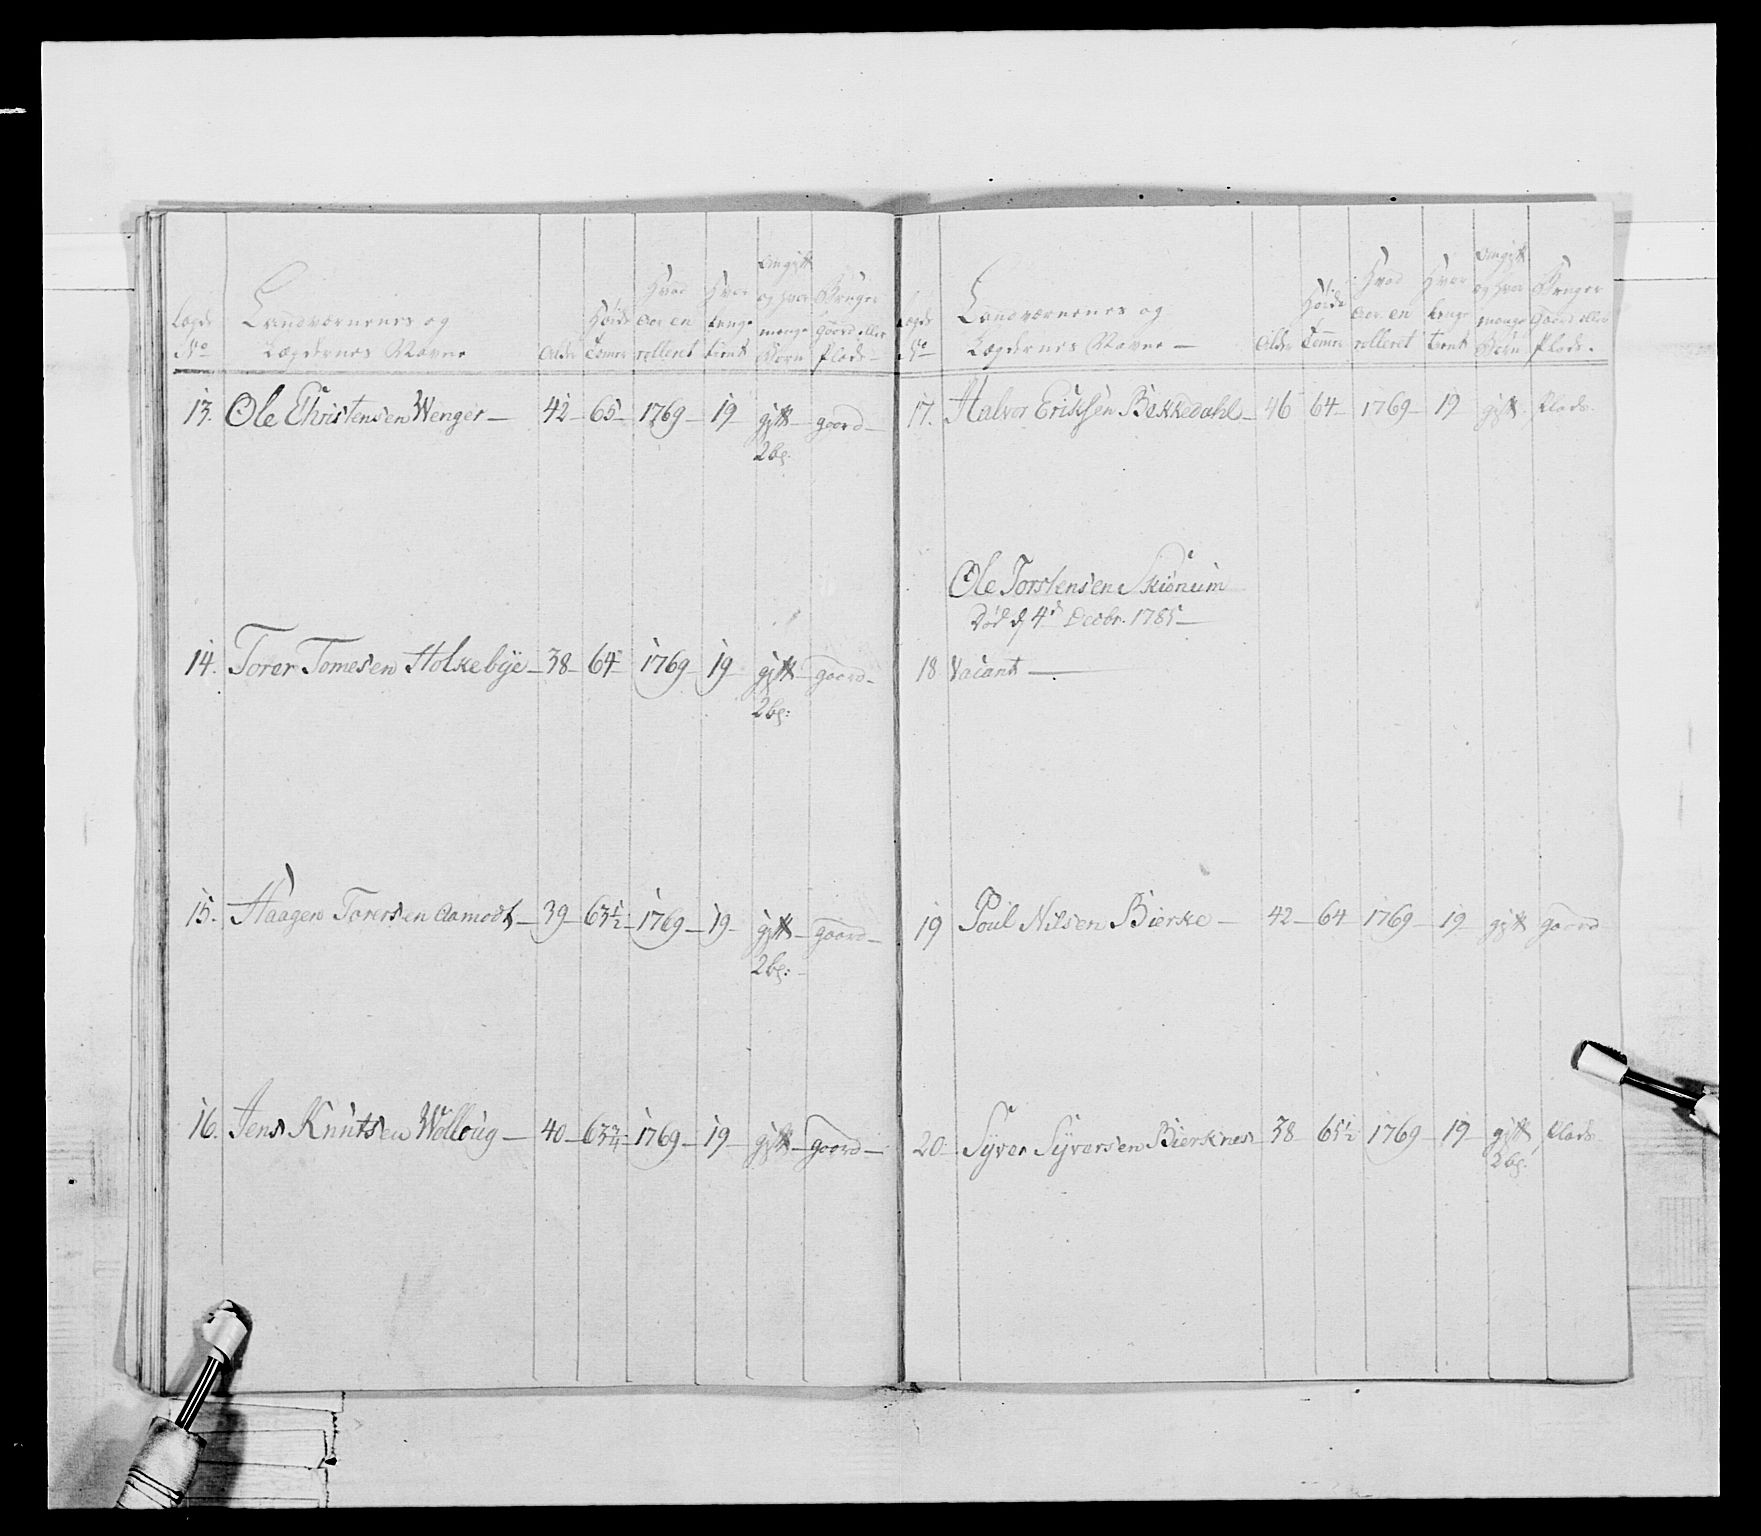 Lægds No
Landværnenes og Lægdernes Navne
Alder
Høide Tomer
Hvad Aar en rolleret
Hvor lenge tient
Om gift og hvor mange Børn
Bruger gaard eller Plads
13. Ole Christensen Wenger — 42 — 65 — 1769 — 19 — gift — gaard —
2 b:
14. Torer Tomesen Holkebye — 38 — 64 — 1769 — 19 — gift — gaard —
2 b:
15. Haagen Torersen Aamodt — 39 — 63½ — 1769 — 19 — gift — gaard —
2 b:
16. Jens Knutsen Wolloug — 40 — 63¾ — 1769 — 19 — gift — gaard —
Lægds No
Landværnenes og Lægdernes Navne —
Alder
Høide Tomer
Hvad Aar en rolleret
Hvor lenge tient
Om gift og hvor mange Børn
Bruger Gaard eller Plads.
17. Halvor Eriksen Bekkedahl — 46 64 — 1769 — 19 gift. Plads.
Ole Torstensen Skiønum
Død d 4d Decbr. 1785 —
18 Vacant —
19 Poul Nilsen Bierke — 42 — 64 1769 — 19 — gift gaard
20 — Syver Syversen Bierknes 38 65½ 1769 — 19 — gift Plads
2 b: